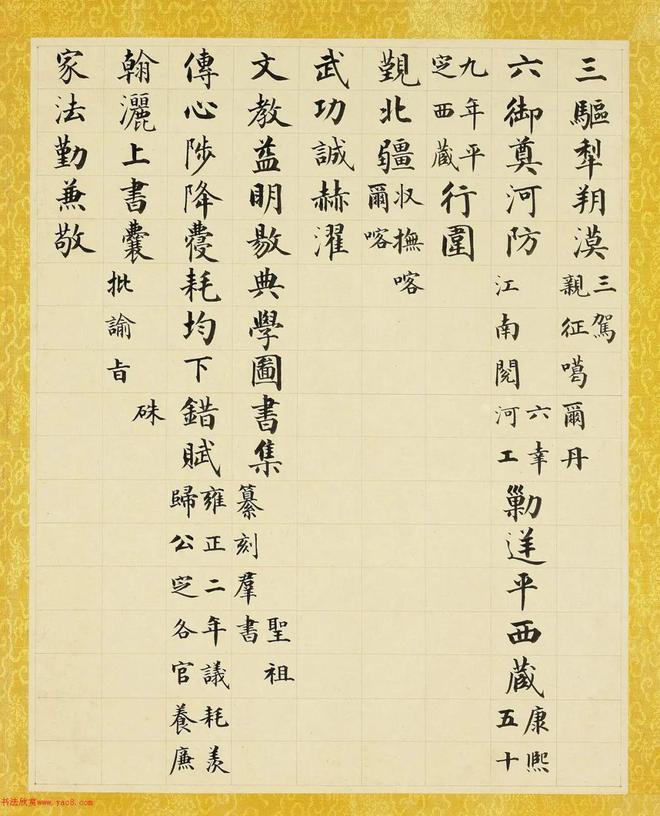 三驅犁朔漠三駕親征噶爾丹
六御奠河防六幸江南閱河工勦逆平西藏康熙五十
九年平定西藏行圍
覲北疆収撫喀爾喀
武功誠赫濯
文教益明敭典學圖書集聖祖纂刻羣書
傳心陟降耗均下錯賦雍正二年議耗羨歸公定各官養廉
翰灑上書囊硃批諭旨
家法勤兼敬
书法欣赏www.yac8.com